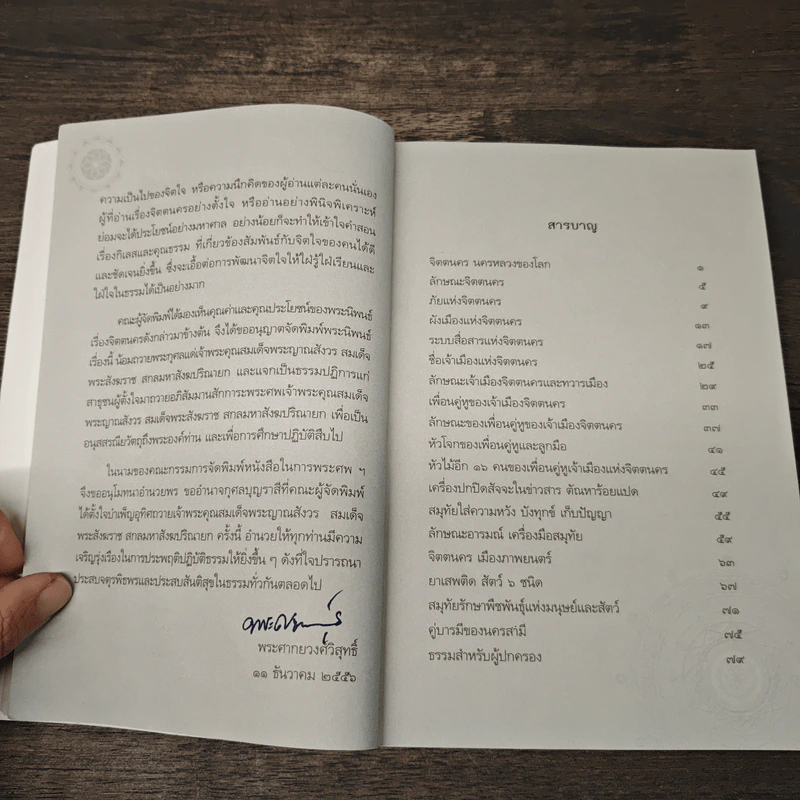 ความเป็นไปของจิตใจ หรือความนึกคิดของผู้อ่านแต่ละคนนั่นเอง
ผู้ที่อ่านเรื่องจิตตนครอย่างตั้งใจ หรืออ่านอย่างพินิจพิเคราะห์
ย่อมจะได้ประโยชน์อย่างมหาศาล อย่างน้อยก็จะทำให้เข้าใจคำสอน
เรื่องกิเลสและคุณธรรม ที่เกี่ยวข้องสัมพันธ์กับจิตใจของคนได้ดี
และชัดเจนยิ่งขึ้น ซึ่งจะเอื้อต่อการพัฒนาจิตใจให้ใฝ่รู้ใฝ่เรียนและ
ใฝ่ใจในธรรมได้เป็นอย่างมาก
คณะผู้จัดพิมพ์ได้มองเห็นคุณค่าและคุณประโยชน์ของพระนิพนธ์
เรื่องจิตตนครดังกล่าวมาข้างต้น จึงได้ขออนุญาตจัดพิมพ์พระนิพนธ์
เรื่องนี้ น้อมถวายพระกุศลแด่เจ้าพระคุณสมเด็จพระญาณสังวร สมเด็จ
พระสังฆราช สกลมหาสังฆปริณายก และแจกเป็นธรรมปฏิการแก่
สาธุชนผู้ตั้งใจมาถวายอภิสัมมานสักการะพระศพเจ้าพระคุณสมเด็จ
พระญาณสังวร สมเด็จพระสังฆราช สกลมหาสังฆปริณายก เพื่อเป็น
อนุสสรณียวัตถุถึงพระองค์ท่าน และเพื่อการศึกษาปฏิบัติสืบไป
ในนามของคณะกรรมการจัดพิมพ์หนังสือในการพระศพ ฯ
จึงขออนุโมทนาอำนวยพร ขออำนาจกุศลบุญราศีที่คณะผู้จัดพิมพ์
ได้ตั้งใจบำเพ็ญอุทิศถวายเจ้าพระคุณสมเด็จพระญาณสังวร สมเด็จ
พระสังฆราช สกลมหาสังฆปริณายก ครั้งนี้ อำนวยให้ทุกท่านมีความ
เจริญรุ่งเรืองในการประพฤติปฏิบัติธรรมให้ยิ่งขึ้น ๆ ดังที่ใจปรารถนา
ประสบจตุรพิธพรและประสบสันติสุขในธรรมทั่วกันตลอดไป
พระศากยวงศ์วิสุทธิ์
๑๑ ธันวาคม ๒๕๕๖
สารบาญ
จิตตนคร นครหลวงของโลก ๑
ลักษณะจิตตนคร ๕
ภัยแห่งจิตตนคร ๙
ผังเมืองแห่งจิตตนคร ๑๓
ระบบสื่อสารแห่งจิตตนคร ๑๗
ชื่อเจ้าเมืองแห่งจิตตนคร ๒๕
ลักษณะเจ้าเมืองจิตตนครและทวารเมือง ๒๙
เพื่อนคู่หูของเจ้าเมืองจิตตนคร ๓๓
ลักษณะของเพื่อนคู่หูของเจ้าเมืองจิตตนคร ๓๗
หัวโจกของเพื่อนคู่หูและลูกมือ ๔๑
หัวไม้อีก ๑๖ คนของเพื่อนคู่หูเจ้าเมืองแห่งจิตตนคร ๔๕
เครื่องปกปิดสัจจะในข่าวสาร ตัณหาร้อยแปด ๔๙
สมุทัยใส่ความหวัง บังทุกข์ เก็บปัญญา ๕๕
ลักษณะอารมณ์ เครื่องมือสมุทัย ๕๙
จิตตนคร เมืองภาพยนตร์ ๖๓
ยาเสพติด สัตว์ ๖ ชนิด ๖๗
สมุทัยรักษาพืชพันธุ์แห่งมนุษย์และสัตว์ ๗๑
คู่บารมีของนครสามี ๗๕
ธรรมสำหรับผู้ปกครอง ๗๙